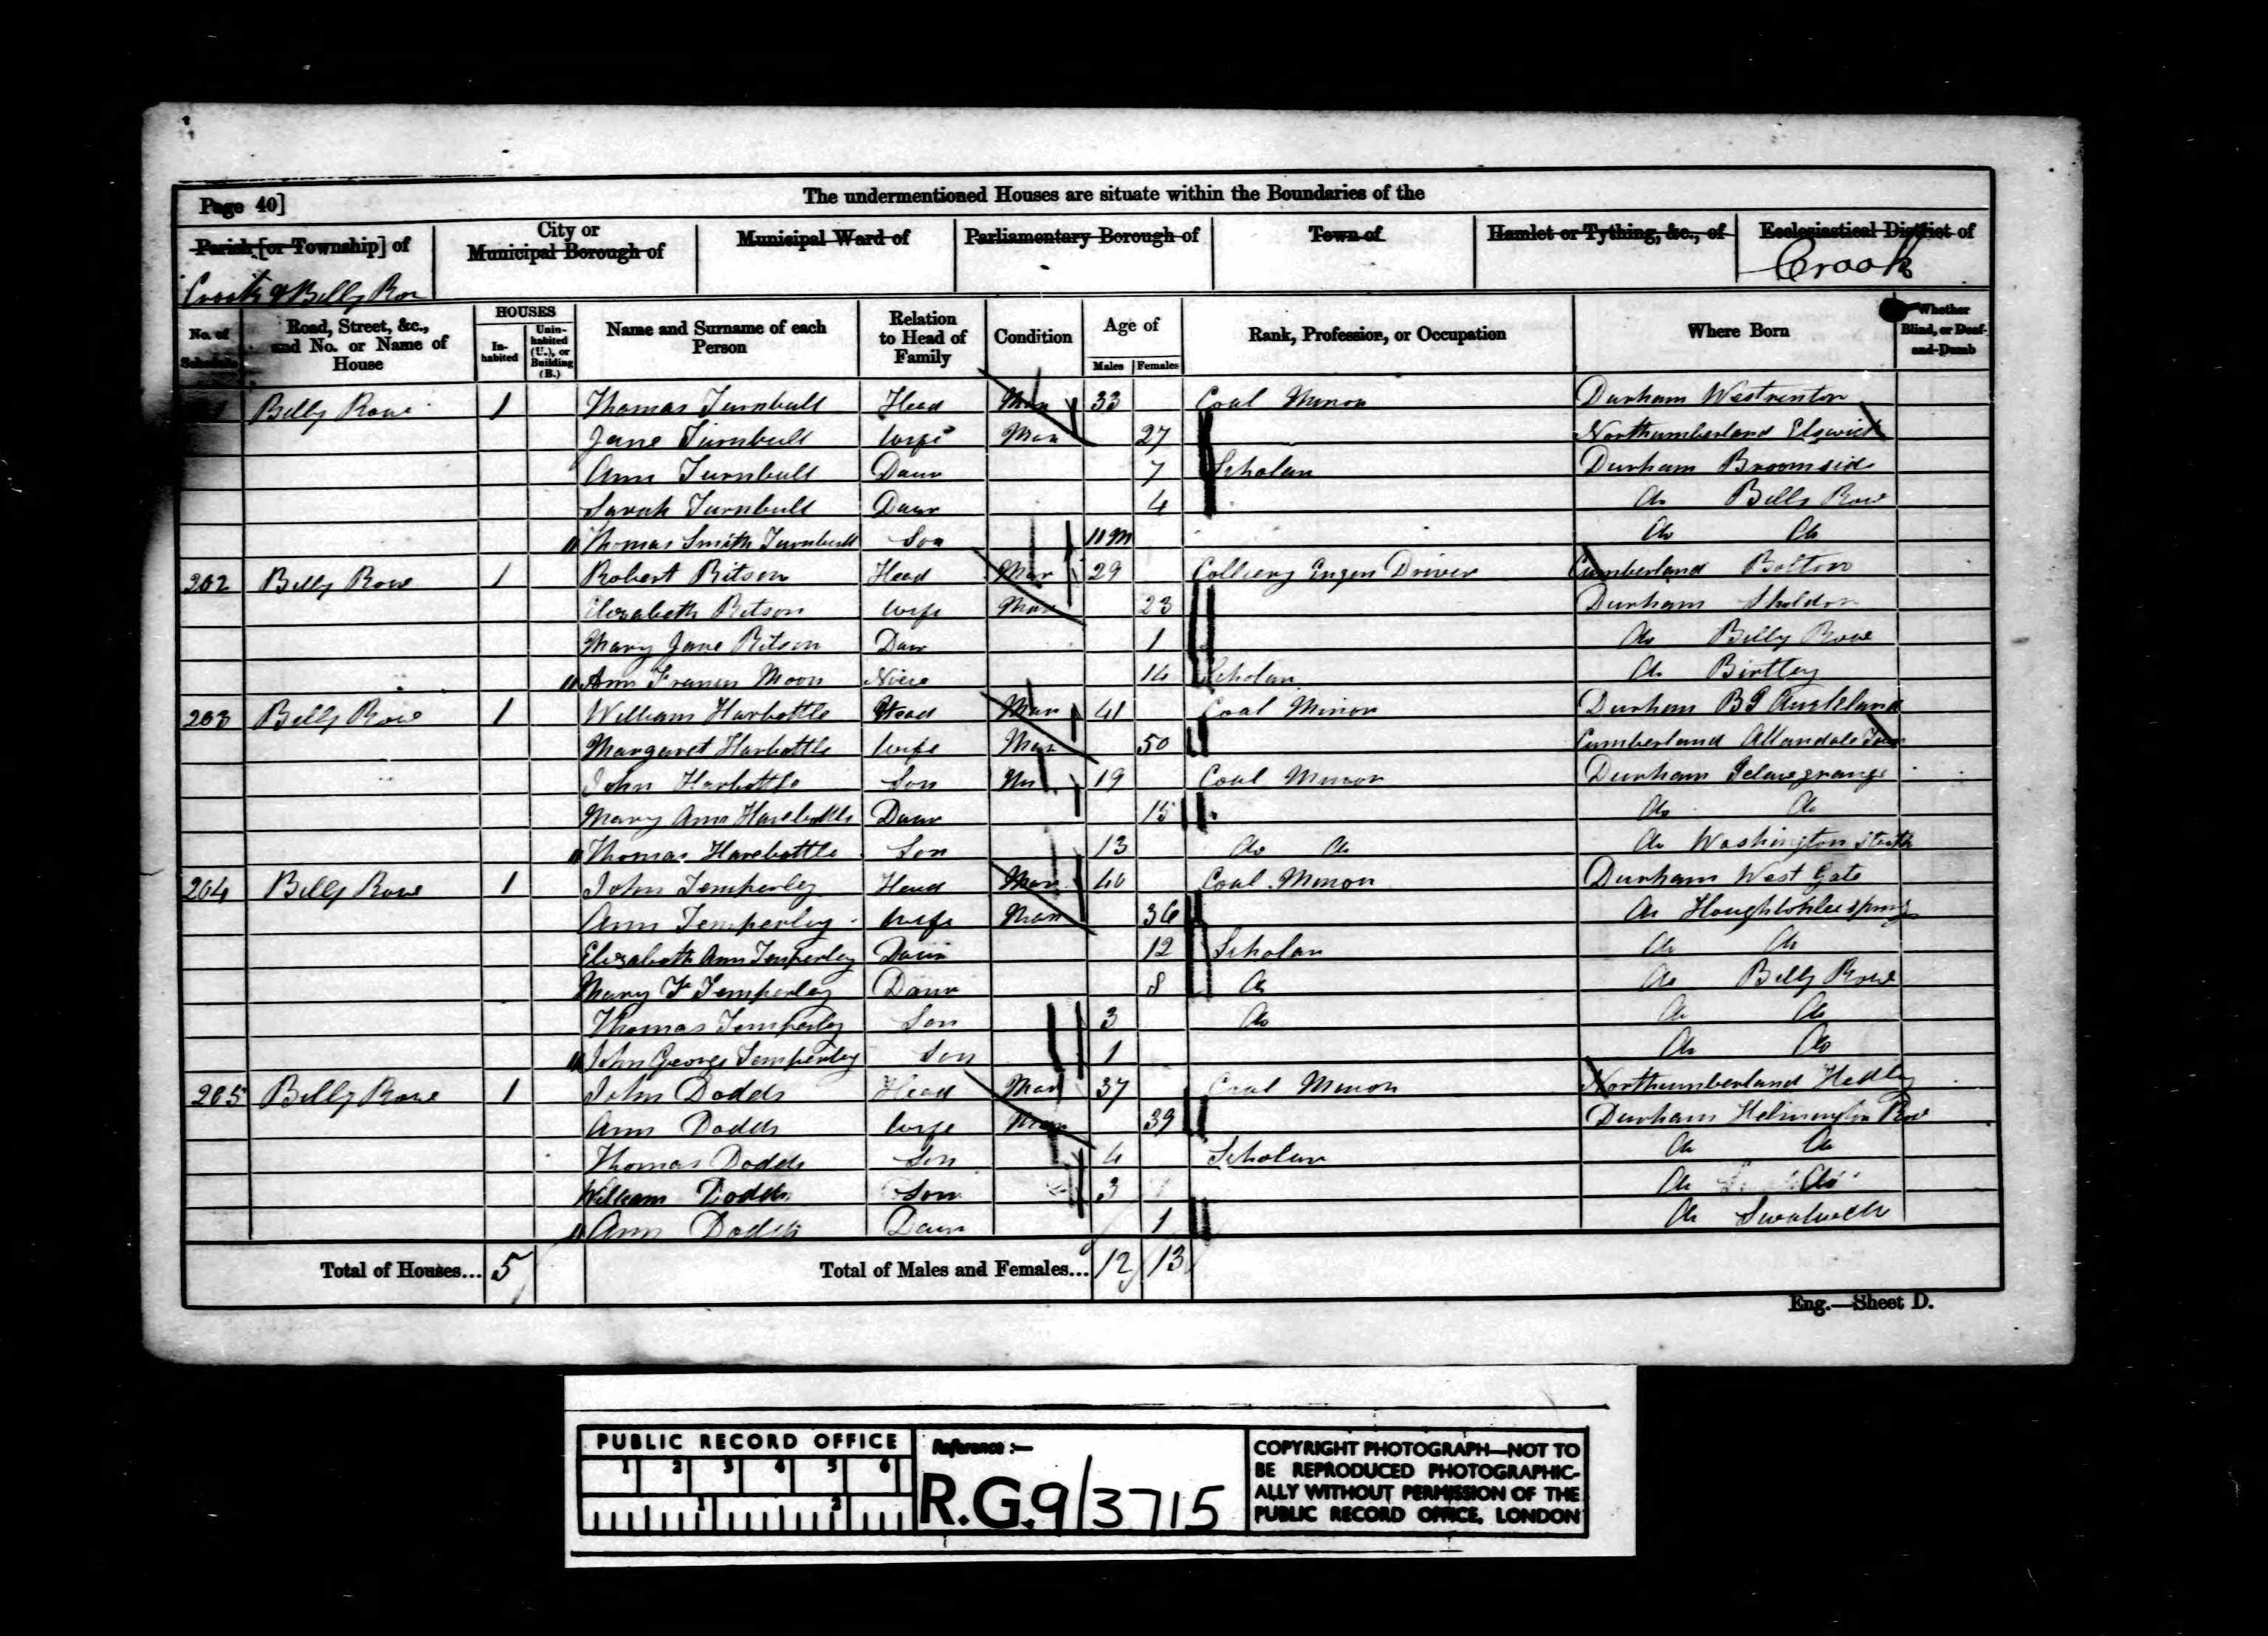 Page 40]
The undermentioned Houses are situate within the Boundaries of the
Parish [or Township] of
City or Municipal Borough of
Municipal Ward of
Parliamentary Borough of
Town of
Hamlet or Tything, &c., of
Ecclesiastical District of
Crook & Billy Row
Crook
No. of Schedule
Road, Street, &c., and No. or Name of House
HOUSES
In-habited
Unin-habited (U.), or Building (B.)
Name and Surname of each Person
Relation to Head of Family
Condition
Age of
Males
Females
Rank, Profession, or Occupation
Where Born
Whether Blind, or Deaf-and-Dumb
Billy Row 1 Thomas Turnbull Head Mar 33 Coal Minor Durham Westrenton
Jane Turnbull Wife Mar 27 Northumberland Elswick
Ann Turnbull Daur 7 Scholar Durham Broomside
Sarah Turnbull Daur 4 do Billy Row
Thomas Smith Turnbull Son 11 m do do
202 Billy Row 1 Robert Ritson Head Mar 29 Colliery Engen Driver Cumberland Bolton
Elizabeth Ritson Wife Mar 23 Durham Sheldon
Mary Jane Ritson Daur 1 do Billy Row
Ann Frances Moon Niece 14 Scholar do Birtley
203 Billy Row 1 William Harbottle Head Mar 41 Coal Minor Durham Bp Auckland
Margaret Harbottle Wife Mar 50 Cumberland Allandale Town
John Harbottle Son Un 19 Coal Minor Durham
Mary Ann Harebottle Daur 15 do do
Thomas Harebottle Son 13 do do do Washington
204 Billy Row 1 John Temperley Head Mar 40 Coal Minor Durham West Gate
Ann Temperley Wife Mar 36 do Houghtonlespring
Elizabeth Ann Temperley Daur 12 Scholar do do
Mary F Temperley Daur 8 do do Billy Row
Thomas Temperley Son 3 do do do
John George Temperley Son 1 do do
205 Billy Row 1 John Dodds Head Mar 37 Coal Minor Northumberland Hedley
Ann Dodds Wife Mar 39 Durham Helmington Row
Thomas Dodds Son 4 Scholar do do
William Dodds Son 3 do do
Ann Dodds Daur 1 do Swalwell
Total of Houses... 5
Total of Males and Females... 12 13
Eng.—Sheet D.
PUBLIC RECORD OFFICE
1 2 3 4 5 6
1 2
Reference :—
R.G. 9/3715
COPYRIGHT PHOTOGRAPH—NOT TO
BE REPRODUCED PHOTOGRAPHIC-
ALLY WITHOUT PERMISSION OF THE
PUBLIC RECORD OFFICE, LONDON